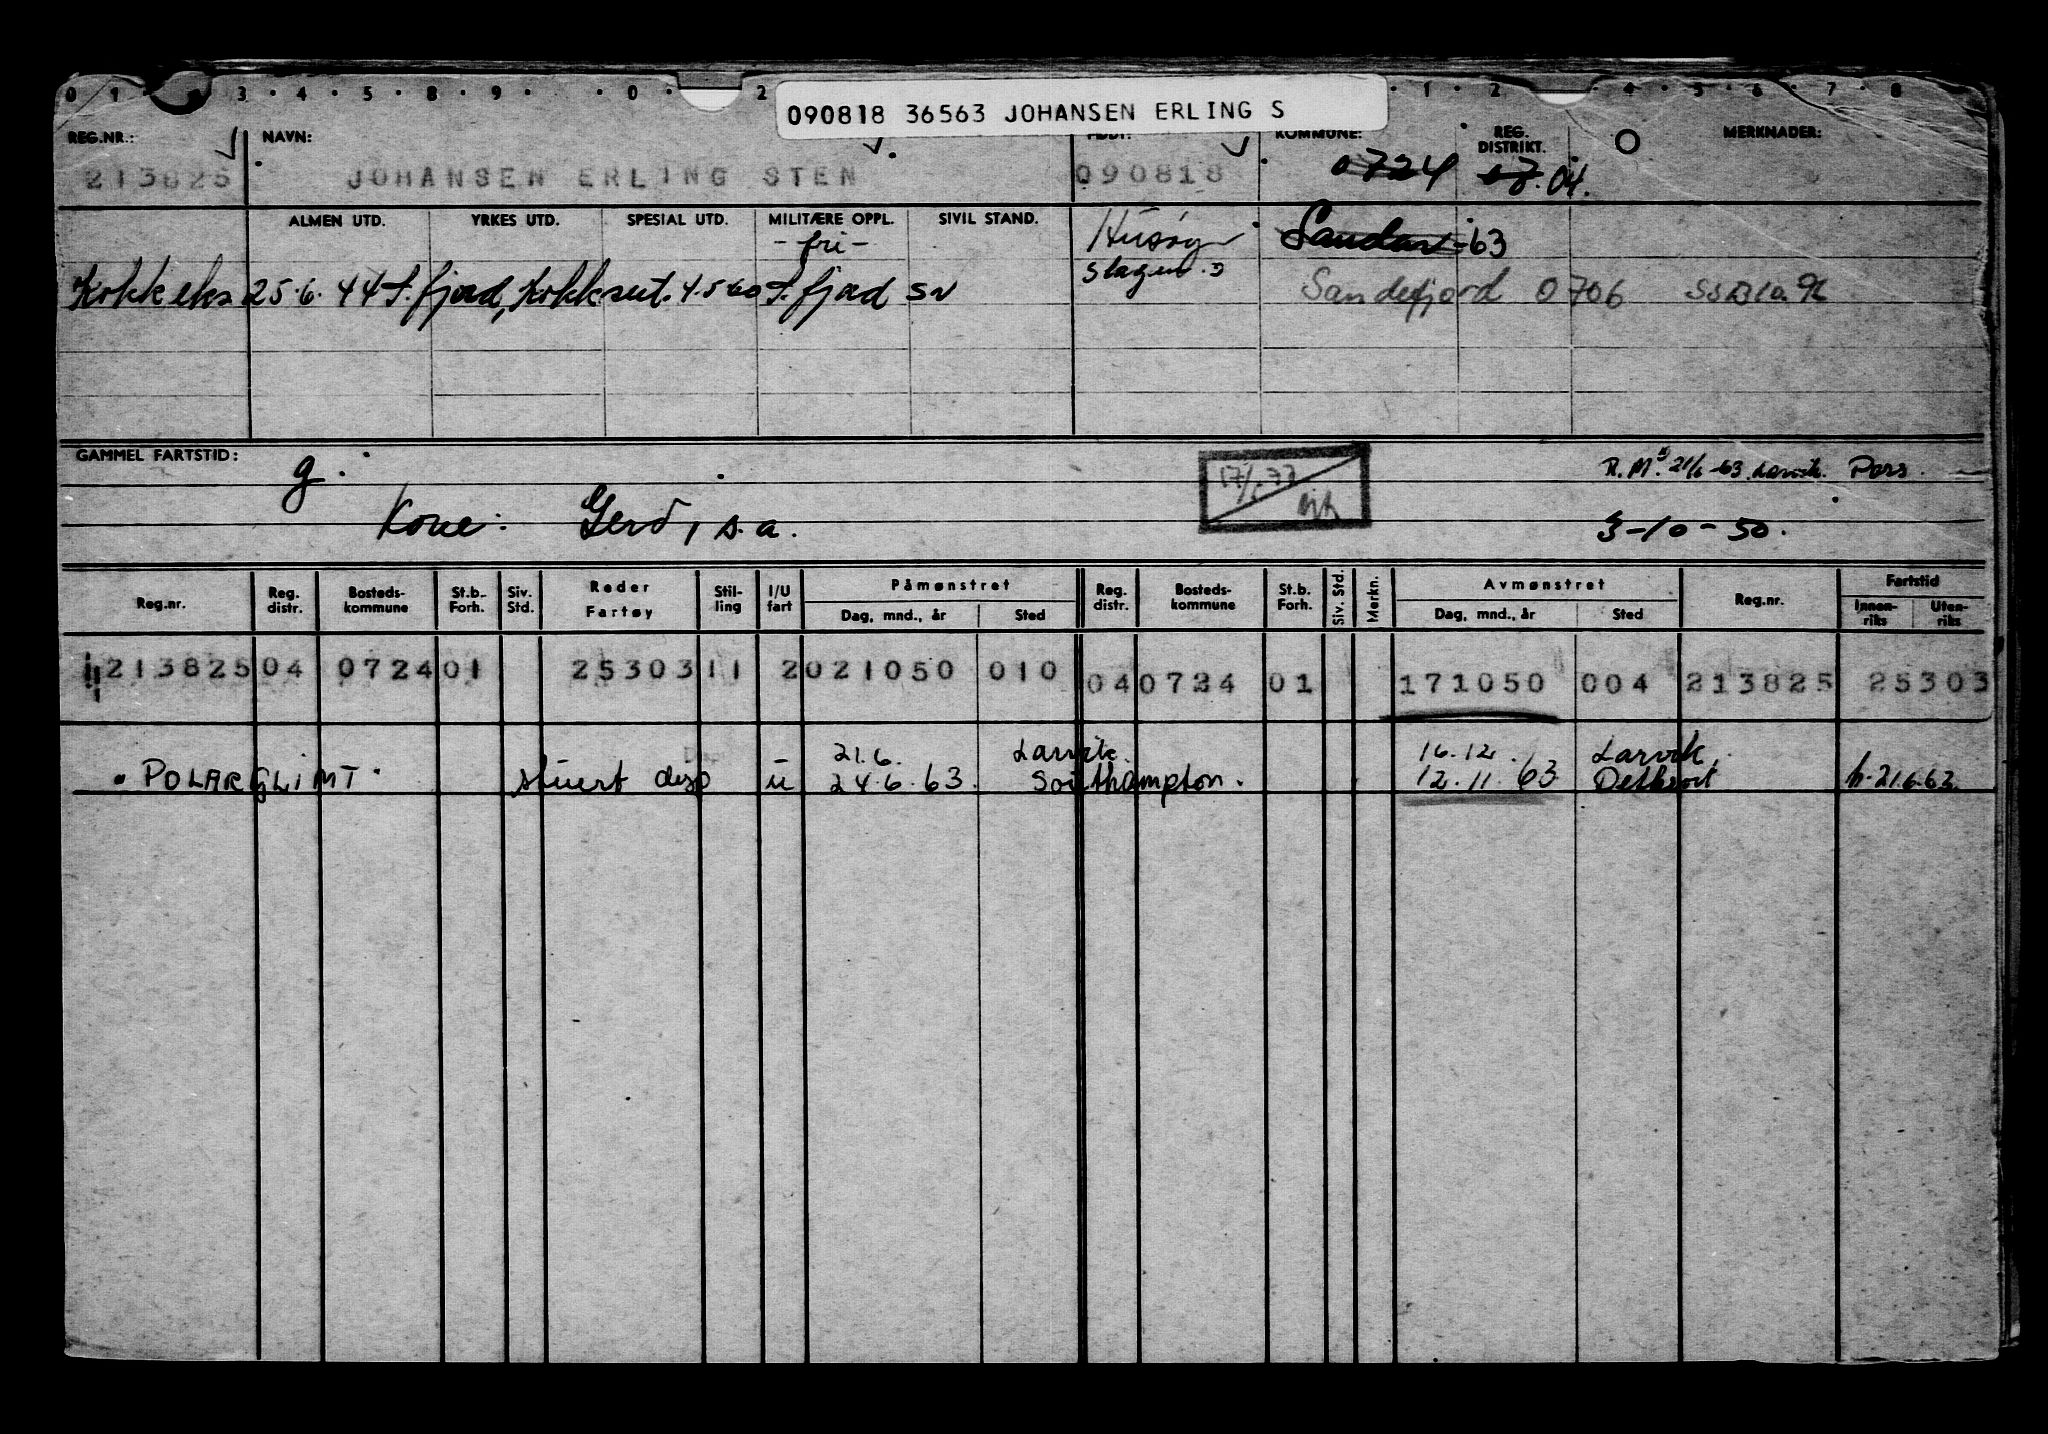 0 1 3 4 5 8 9 0 2 1 2 4 5 6 7 8
090818 36563 JOHANSEN ERLING S
REG.NR.: NAVN: FØDT: KOMMUNE: REG. DISTRIKT. MERKNADER:
213825 JOHANSEN ERLING STEN 090818 0724 07. 04.
ALMEN UTD. YRKES UTD. SPESIAL UTD. MILITÆRE OPPL. SIVIL STAND.
-fri- Husøy Sandar -63
Slagen
Kokk eks 25.6.44 S.fjord, Kokksert. 4.5.60 S.fjord Sandefjord 0706
GAMMEL FARTSTID: g.
R.M. 21/6-63 Larvik. Pass.
Kone: Gerd, s.a.
3-10-50.
Reg.nr. Reg. distr. Bosteds-kommune St.b. Forh. Siv. Std. Reder Fartøy Stil-ling I/U fart Påmønstret Dag, mnd., år Sted Reg. distr. Bosteds-kommune St.b. Forh. Siv. Std. Merkn. Avmønstret Dag, mnd., år Sted Reg.nr. Fartstid Innen-riks Uten-riks
213825 04 0724 01 25303 11 2 021050 010 04 0724 01 171050 004 213825 25303
21.6. Larvik. 16.12. Larvik.
POLARGLIMT stuert u 24.6.63. Southampton. 12.11.63 h.21.6.63.